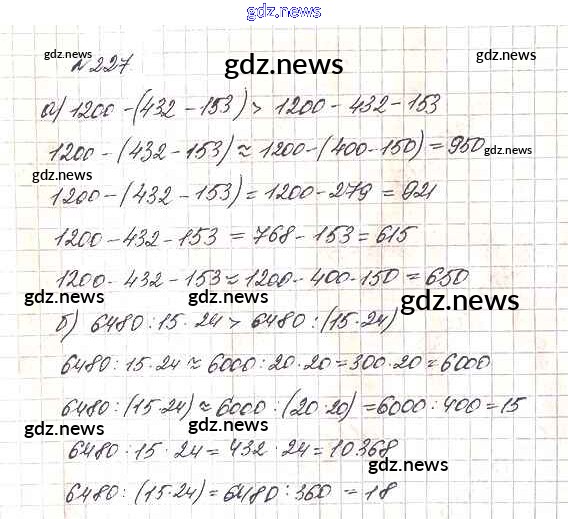 gdz.news
№227
gdz.news
gdz.news
а) 1200 - (432 - 153) > 1200 - 432 - 153
1200 - (432 - 153) ≈ 1200 - (400 - 150) = 950
gdz.news
gdz.news
1200 - (432 - 153) = 1200 - 279 = 921
1200 - 432 - 153 = 768 - 153 = 615
1200 - 432 - 153 ≈ 1200 - 400 - 150 = 650
gdz.news
gdz.news
gdz.news
б) 6480 : 15 · 24 > 6480 : (15 · 24)
6480 : 15 · 24 ≈ 6000 : 20 · 20 = 300 · 20 = 6000
6480 : (15 · 24) ≈ 6000 : (20 · 20) = 6000 : 400 = 15
gdz.news
gdz.news
6480 : 15 · 24 = 432 · 24 = 10368
gdz.news
6480 : (15 · 24) = 6480 : 360 = 18